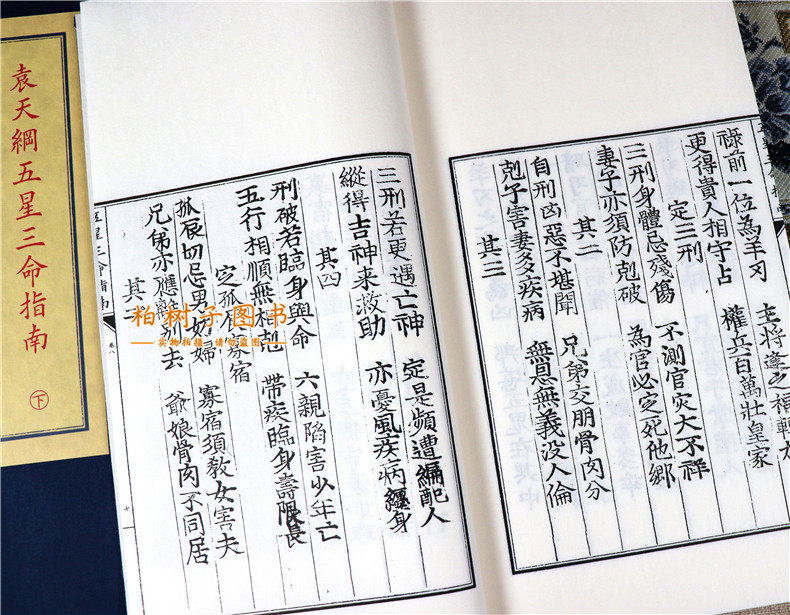 袁天綱五星三命指南 下
祿前一位為羊刃 主將逢之福轉
更得貴人相守占 權兵百萬壯皇家
定三刑
三刑身體忌殘傷 不測官灾大不祥
妻子亦須防剋破 為官必定死他鄉
其二
自刑凶惡不堪聞 兄弟交朋骨肉分
剋子害妻多疾病 無恩無義没人倫
其三
三刑若更遇亡神 定是頻遭編配人
縱得吉神来救助 亦憂風疾病纏身
其四
刑破若臨身與命 六親陷害少年亡
五行相順無相剋 帶疾臨身壽限長
定孤辰寡宿
孤辰切忌男妨婦 寡宿須教女害夫
兄弟亦應離别去 爺娘骨肉不同居
其二
五星三命指南 卷八
柏树子图书
实物拍摄 请勿盗图